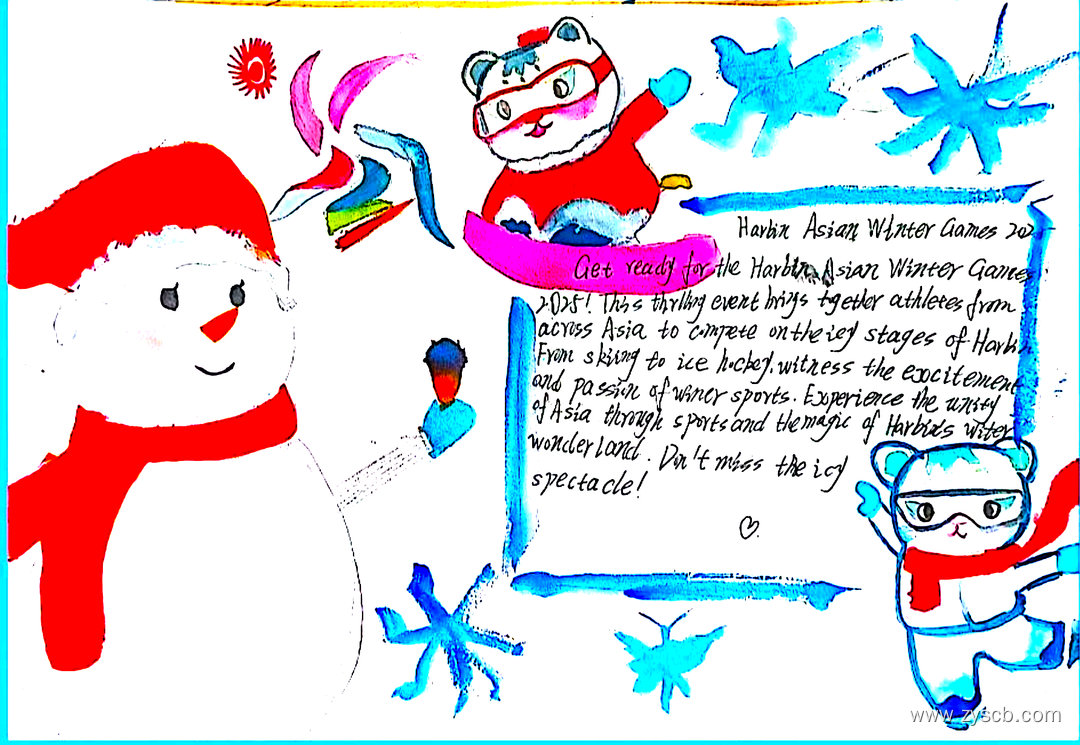 Harbin Asian Winter Games 202
Get ready for the Harbin Asian Winter Games
2025! This thrlling event brings together athletes from
across Asia to compete on the icy stages of Harbin
From skiing to ice hockey, witness the excitement
and passion of winer sports. Experience the unity
of Asia through sports and the magic of Harbin's witer
wonderland. Don't miss the icy
spectacle!
www.zyscb.com